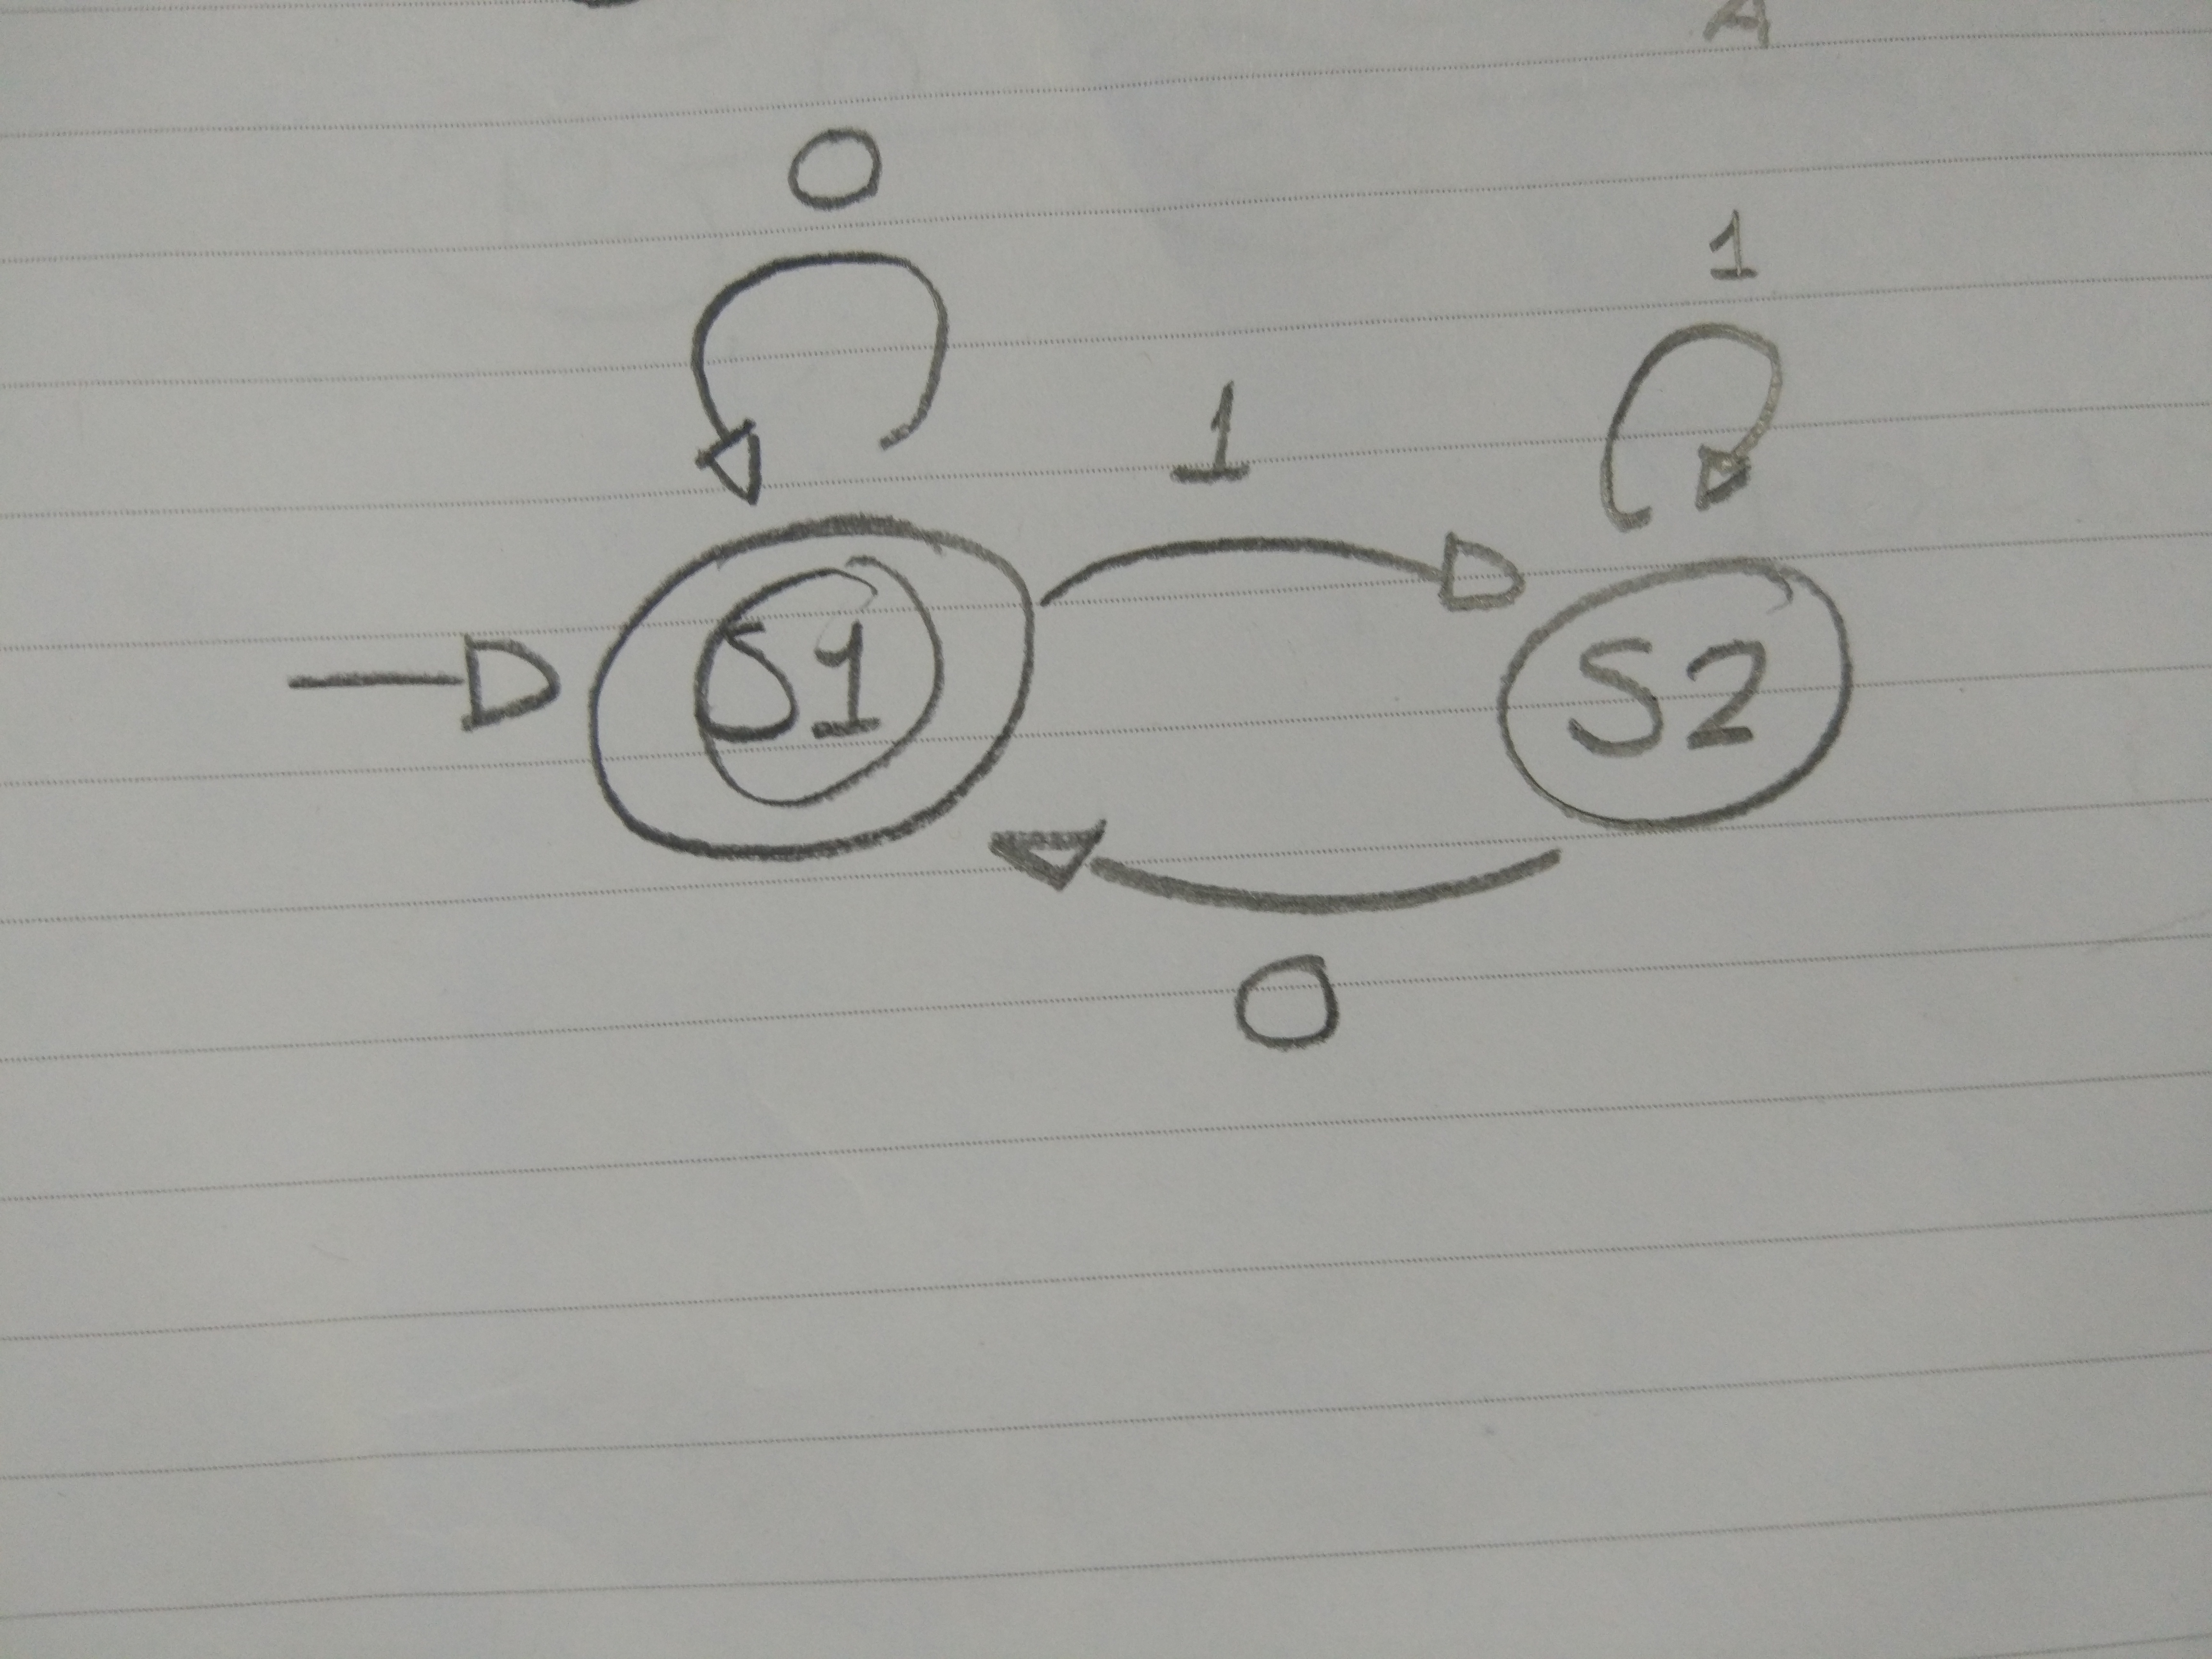 0
1
1
S1
S2
0